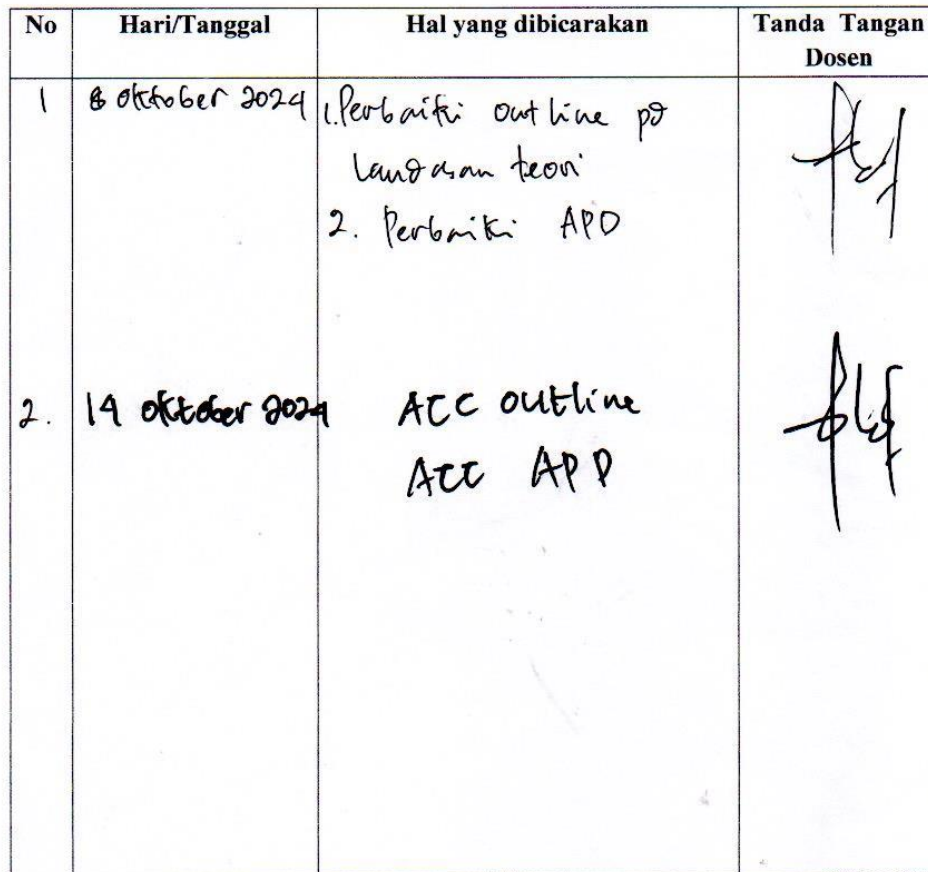 No Hari/Tanggal Hal yang dibicarakan Tanda Tangan
Dosen
1 8 Oktober 2024 1. Perbaiki outline pd
landasan teori
2. Perbaiki APD
2. 14 Oktober 2024 ACC outline
ACC APD